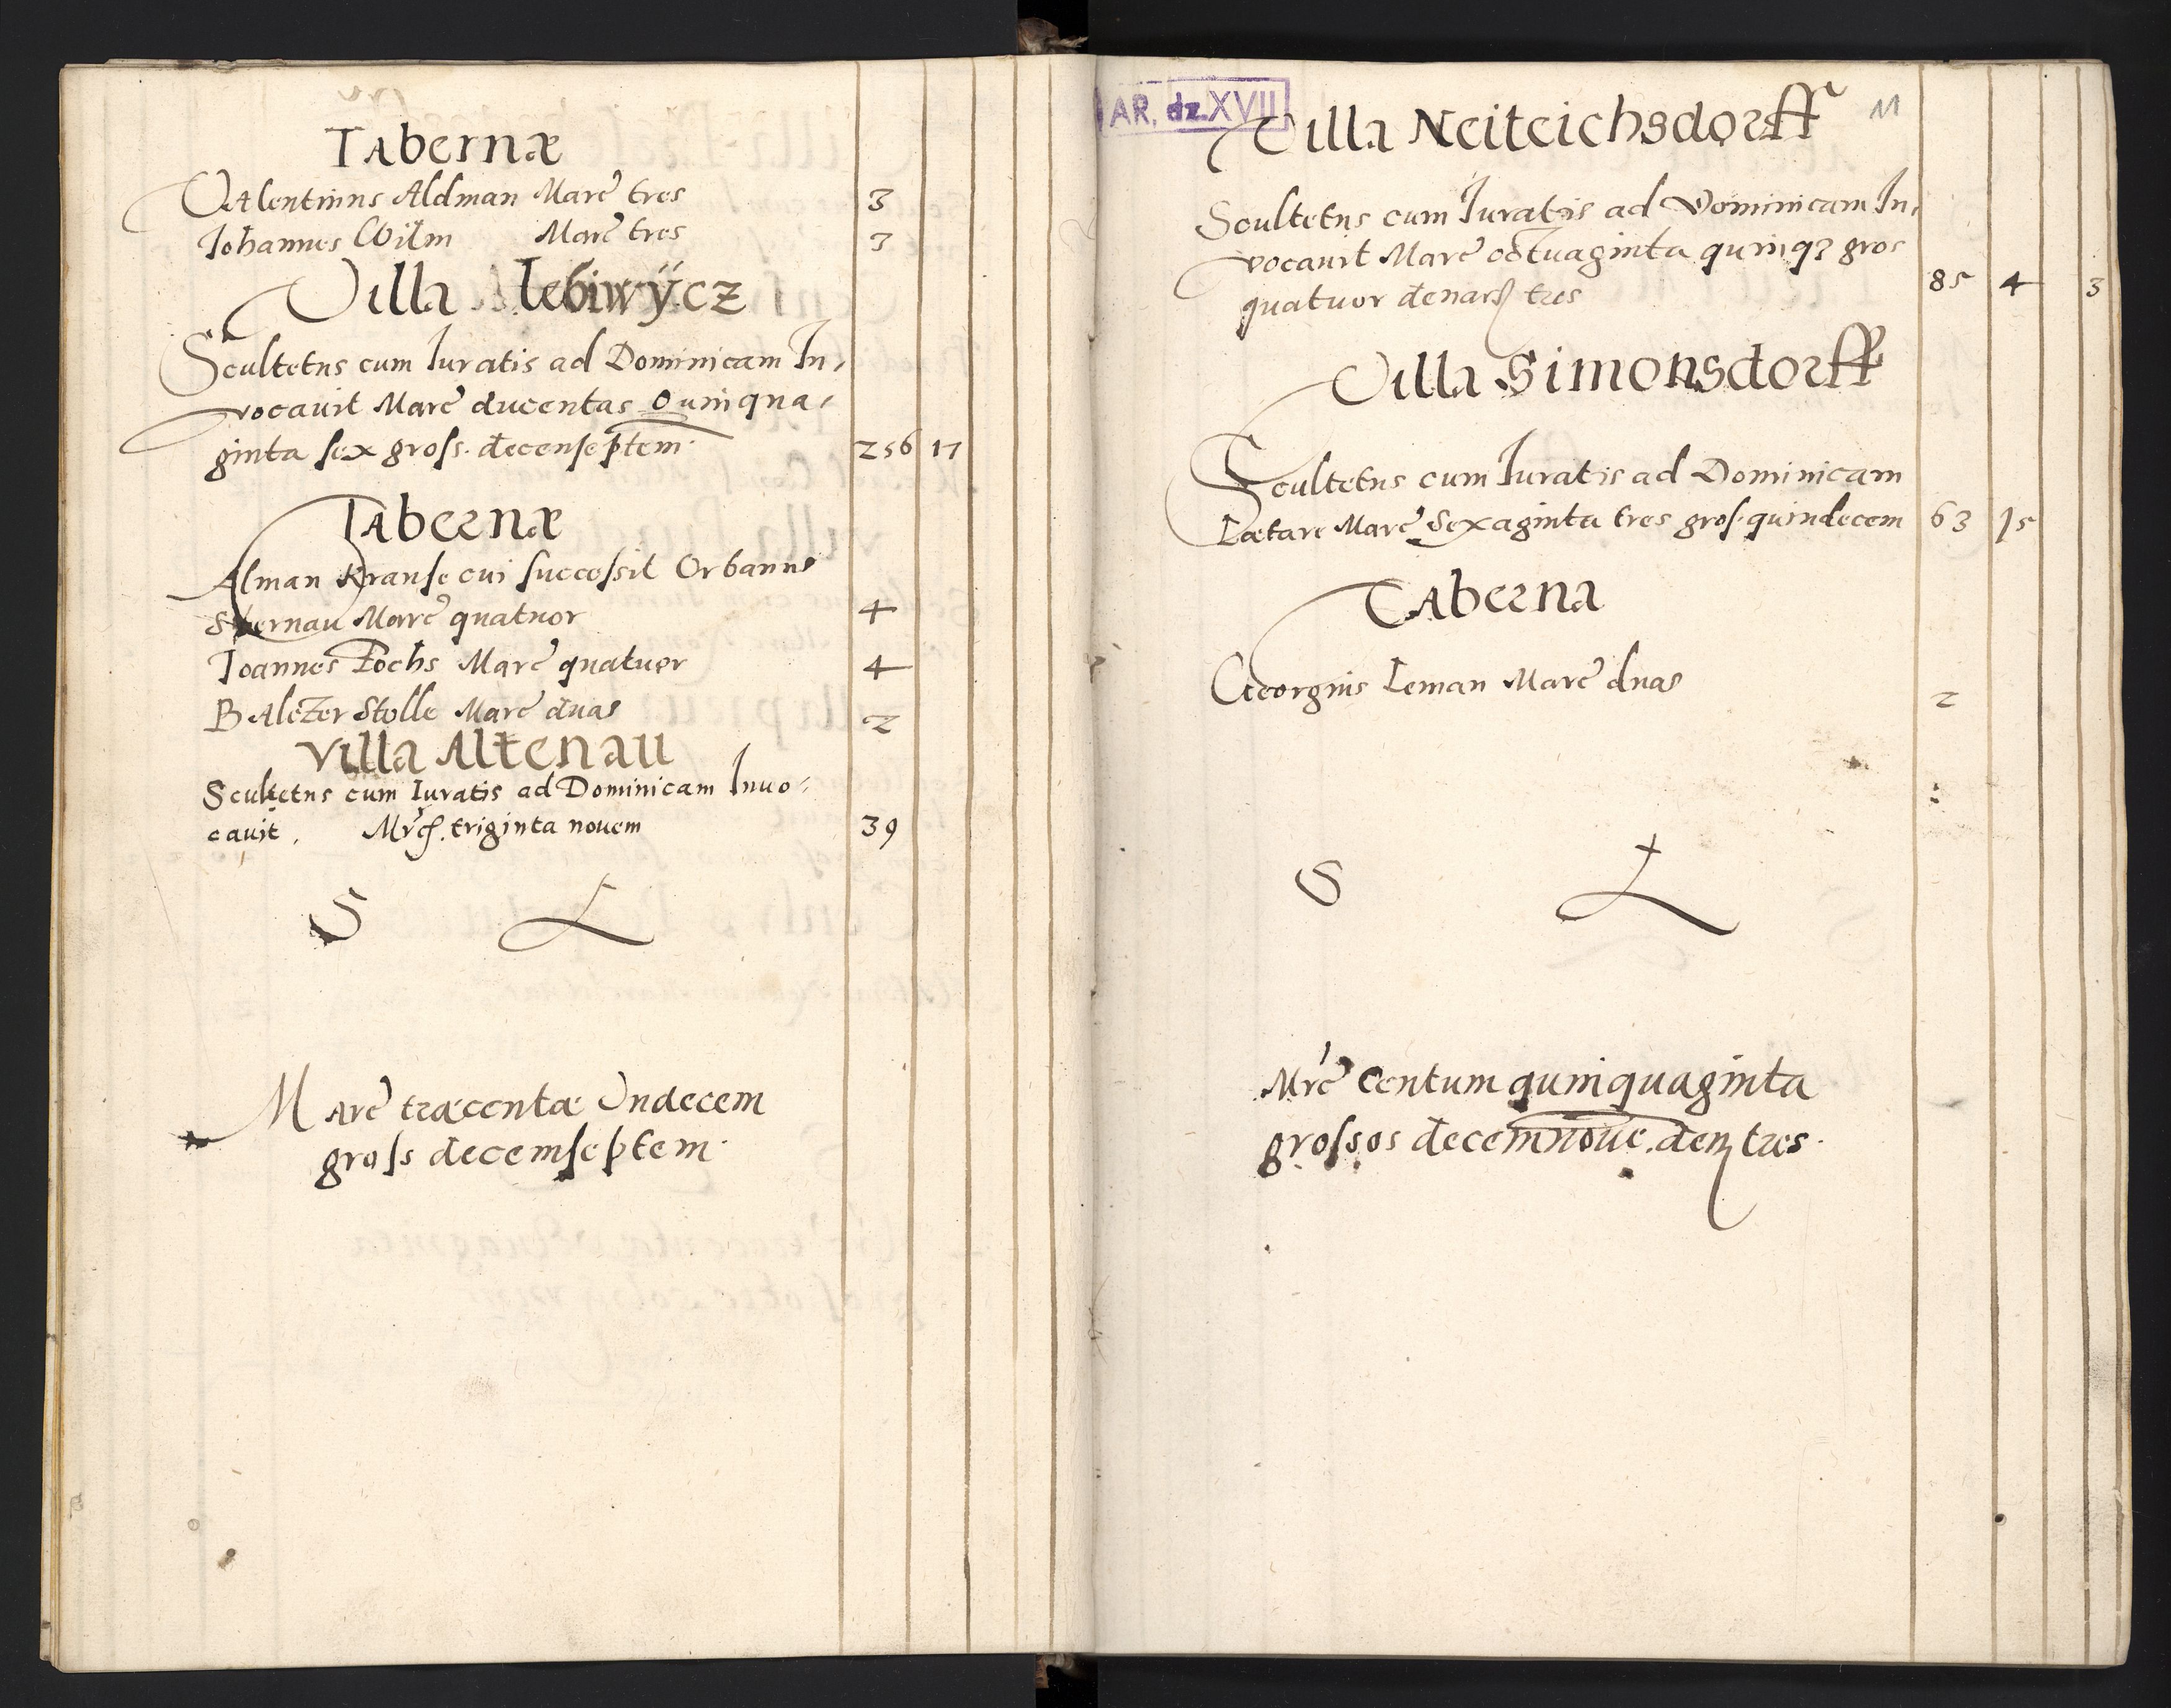 Tabernæ
Valentinus Aldman Marc tres 3
Johannes Wilm Marc tres 3
Villa Lebiwÿcz
Scultetus cum Iuratis ad Dominicam In,
vocavit Marc ducentas Quinqua,
ginta sex gross. decenseptem. 256 17
Tabernæ
Alman Kranse cui successit Orbanus
Sternau Marc quatuor 4
Joannes Pochs Marc quatuor 4
Balczer Stolle Marc duas 2
Villa Altenau
Scultetus cum Iuratis ad Dominicam Inuo,
cauit, Mrc. triginta nouem 39
S L
Marc træcentæ Undecem
gross decemseptem.
AR. dz. XVII
11
Villa Neiteichsdorff
Scultetus cum Iuratis ad Dominicam In,
vocauit Marc octuaginta quinq3 gros
quatuor denar tres 85 4 3
Villa Simonsdorff
Scultetus cum Iuratis ad Dominicam
Lætare Marc Sexaginta tres gros. quindecem 63 15
Taberna
Georgius Leman Marc duas 2
S L
Mrc Centum quinquaginta
grossos decemnoue. den tres.